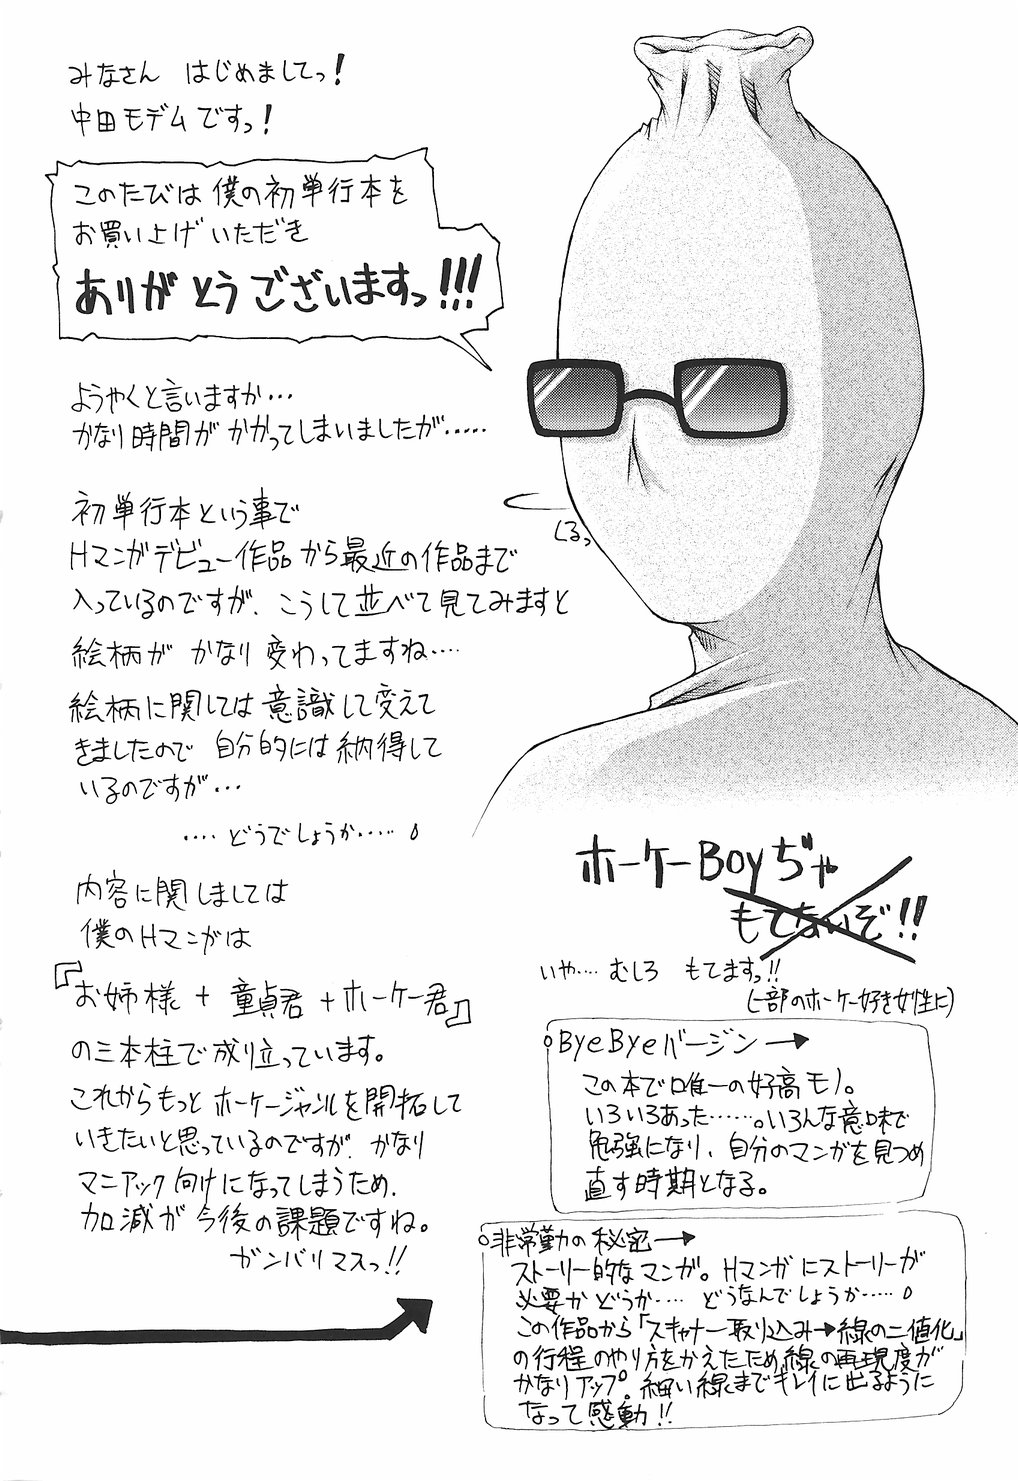 みなさん はじめましてっ!
中田モデムですっ!
このたびは 僕の初単行本を
お買い上げ いただき
ありがとうございますっ!!!
ようやくと言いますか…
かなり時間が かかってしまいましたが……
初単行本という事で
Hマンガデビュー作品から最近の作品まで
入っているのですが、こうして並べて見てみますと
絵柄が かなり変わってますね…
絵柄に関しては意識して変えて
きましたので 自分的には納得して
いるのですが…
…どうでしょうか……
内容に関しましては
僕のHマンガは
『お姉様 + 童貞君 + ホーケー君』
の三本柱で成り立っています。
これからもっと ホーケージャンルを開拓して
いきたいと思っているのですが、かなり
マニアック向けになってしまうため、
加減が今後の課題ですね。
ガンバリマスっ!!
くるっ
ホーケーBoyぢゃ
もてないぞ!!
いや… むしろ もてますっ!!
(一部のホーケー好き女性に)
ByeByeバージン→
この本で唯一の好高モノ。
いろいろあった……。いろんな意味で
勉強になり、自分のマンガを見つめ
直す時期となる。
非常勤の秘密→
ストーリー的なマンガ。Hマンガにストーリーが
必要かどうか… どうなんでしょうか……
この作品から「スキャナー取り込み→線の二値化」
の行程のやり方をかえたため、線の再現度が
かなりアップ。細い線までキレイに出るように
なって感動!!